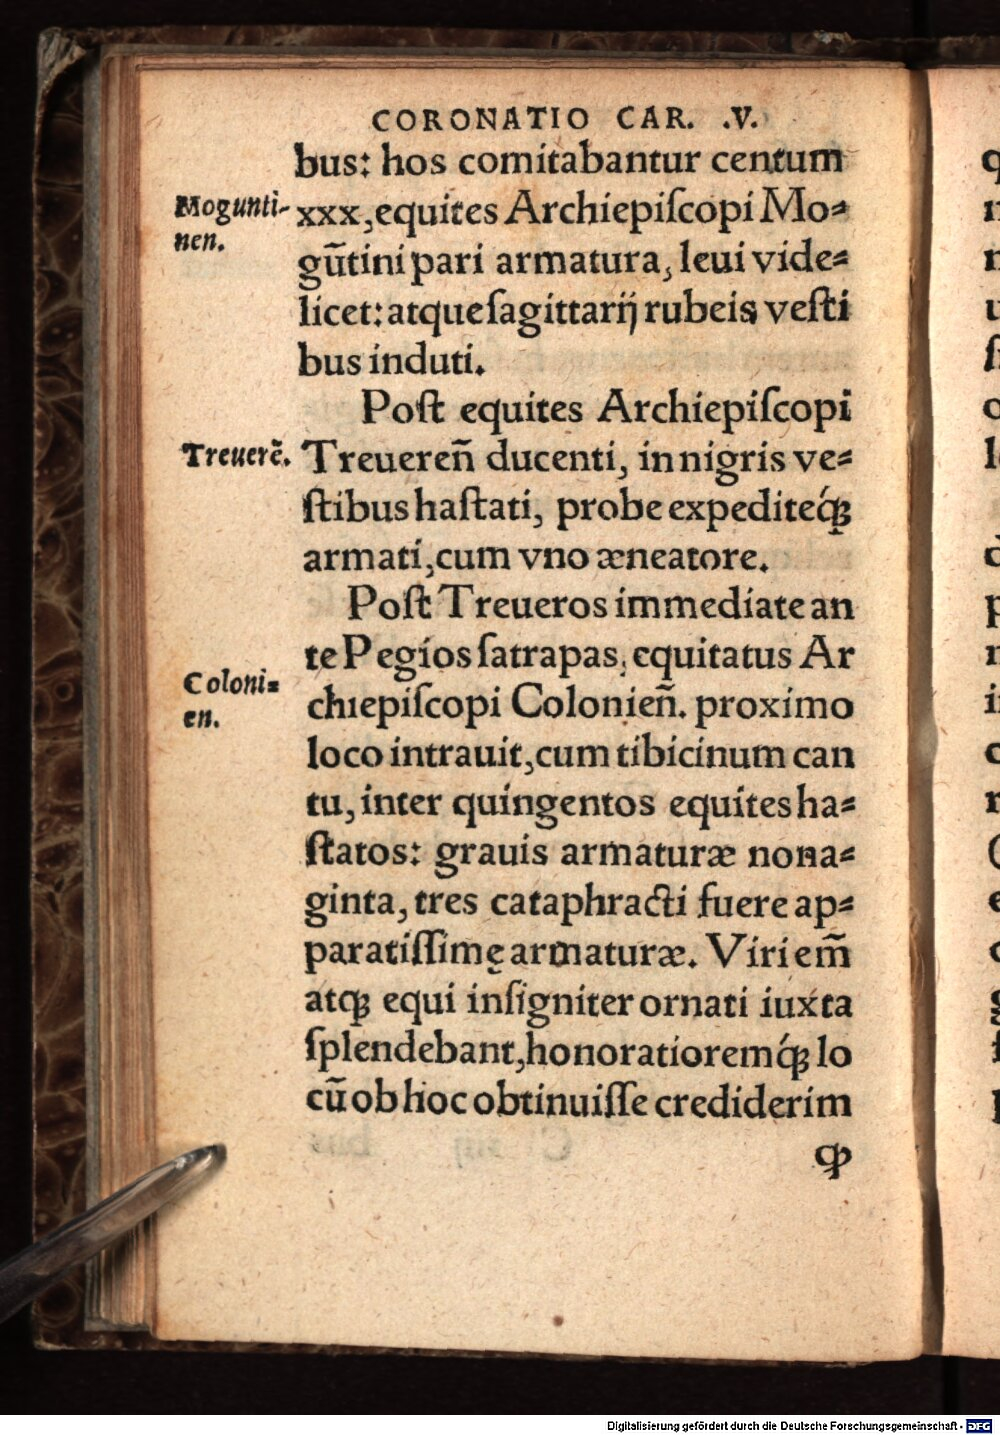 CORONATIO CAR. .V.
bus: hos comitabantur centum
Mogunti-
nen.
xxx, equites Archiepiſcopi Mo⸗
gũtini pari armatura, leui vide⸗
licet: atque ſagittarij rubeis veſti
bus induti.
Poſt equites Archiepiſcopi
Treuerẽ.
Treuereñ ducenti, in nigris ve⸗
ſtibus haſtati, probe expediteq́ꝫ
armati, cum vno æneatore.
Poſt Treueros immediate an
te Pegios ſatrapas, equitatus Ar
Coloni⸗
en.
chiepiſcopi Colonieñ. proximo
loco intrauit, cum tibicinum can
tu, inter quingentos equites ha⸗
ſtatos: grauis armaturæ nona⸗
ginta, tres cataphracti fuere ap⸗
paratiſſimę armaturæ. Viri em̃
atqꝫ equi inſigniter ornati iuxta
ſplendebant, honoratioremq́ꝫ lo
cũ ob hoc obtinuiſſe crediderim
ꝙ
Digitalisierung gefördert durch die Deutsche Forschungsgemeinschaft - DFG